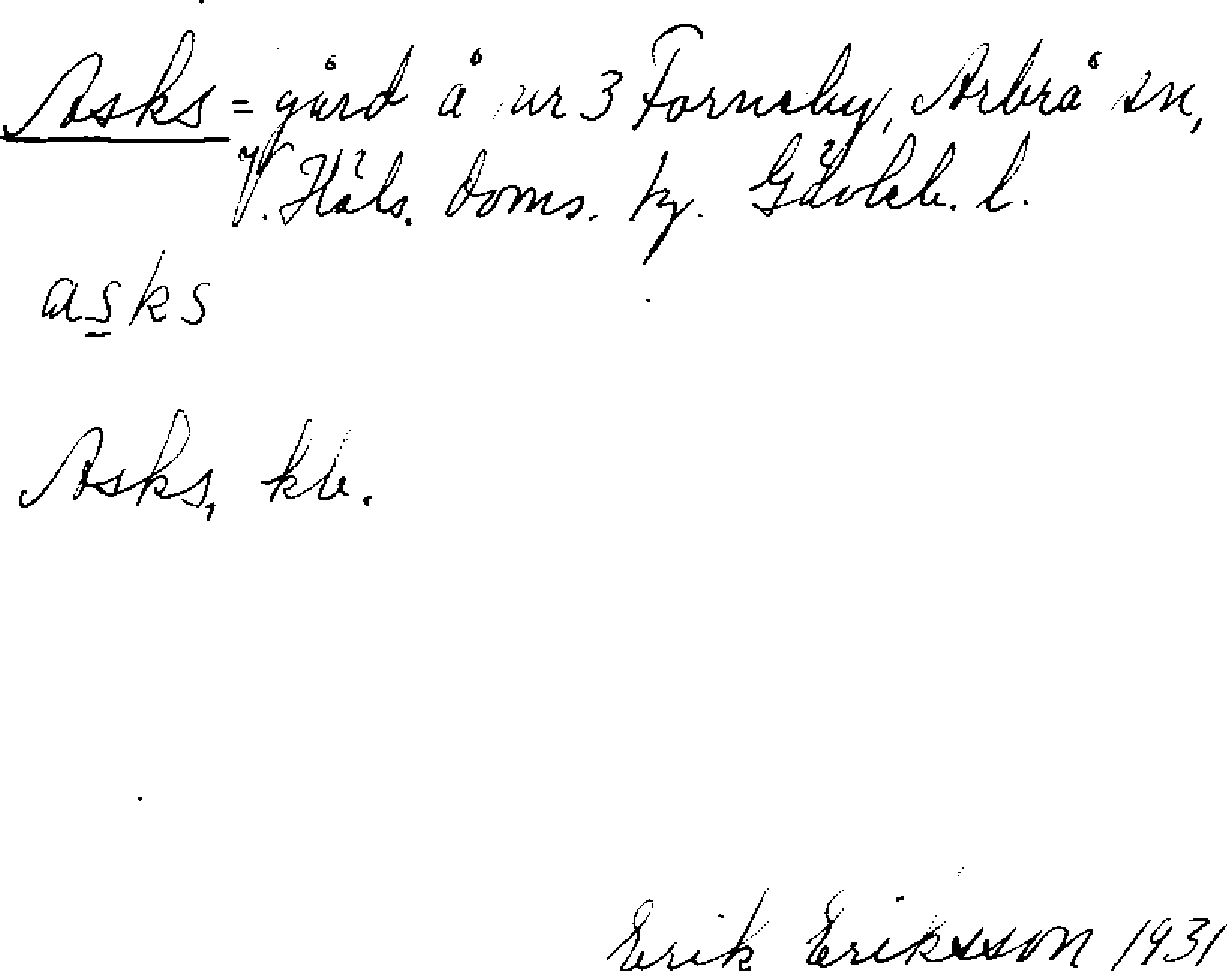 Asks = gård å nr 3 Forneby, Arbrå sn,
V. Häls. doms. tg. Gävleb. l.
asks
Asks, kb.
Erik Eriksson 1931